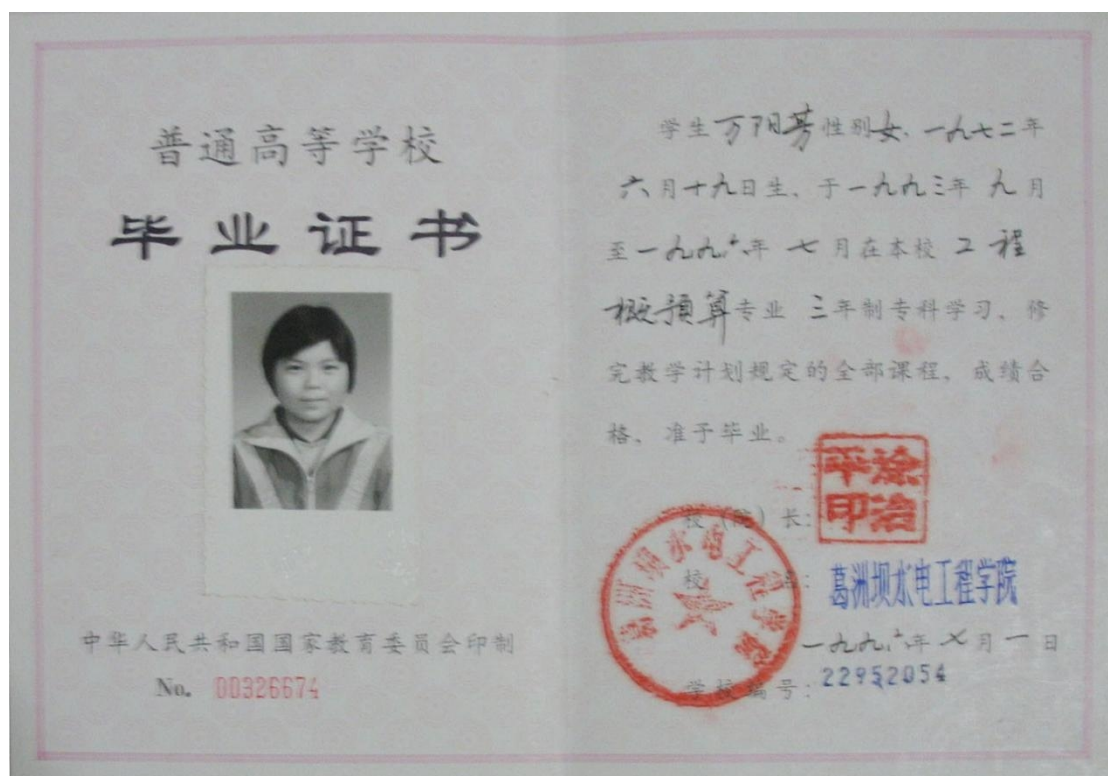 普通高等学校
毕业证书
中华人民共和国国家教育委员会印制
No. 00326674
学生万阳芳性别女、一九七二年
六月十九日生、于一九九三年九月
至一九九六年七月在本校工程
概预算专业三年制专科学习、修
完教学计划规定的全部课程，成绩合
格，准予毕业。
校(院)长:
涂治平印
校 名: 葛洲坝水电工程学院
葛洲坝水电工程学院
一九九六年七月一日
学校编号: 22952054